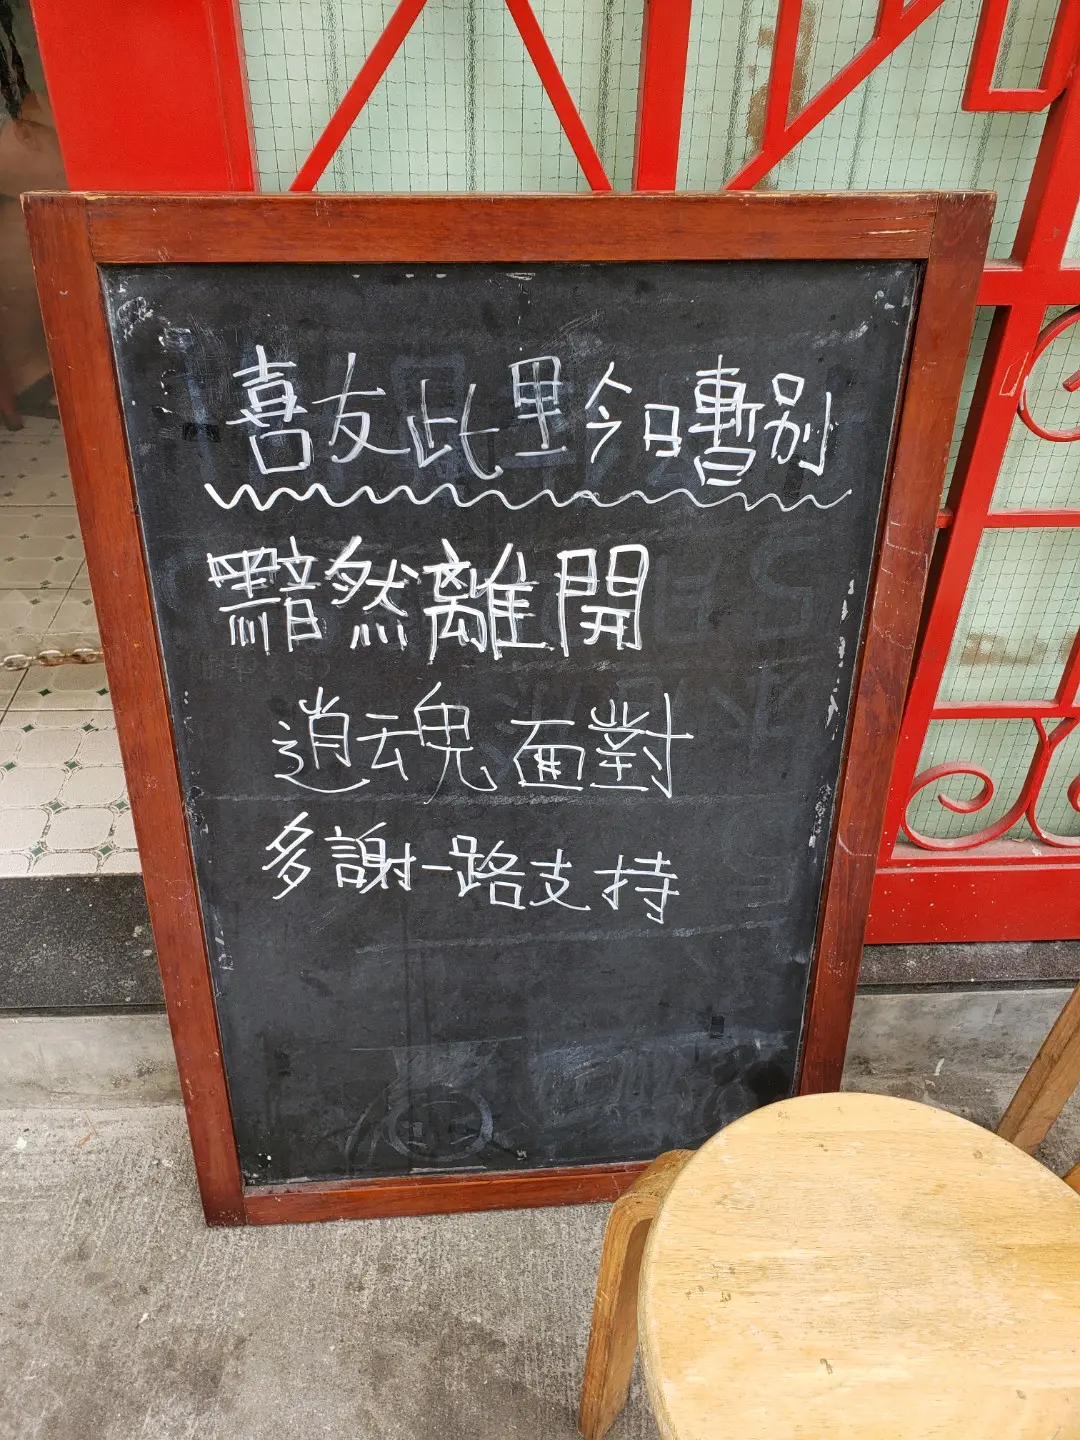 喜友此里今日暫別
黯然離開
逍魂面對
多謝一路支持